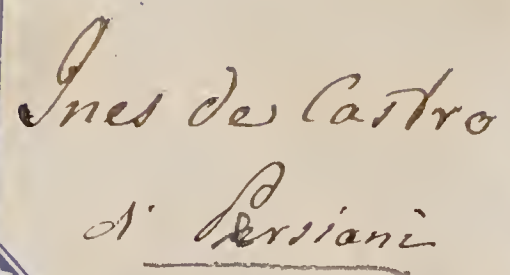 Ines de Castro
di Persiani